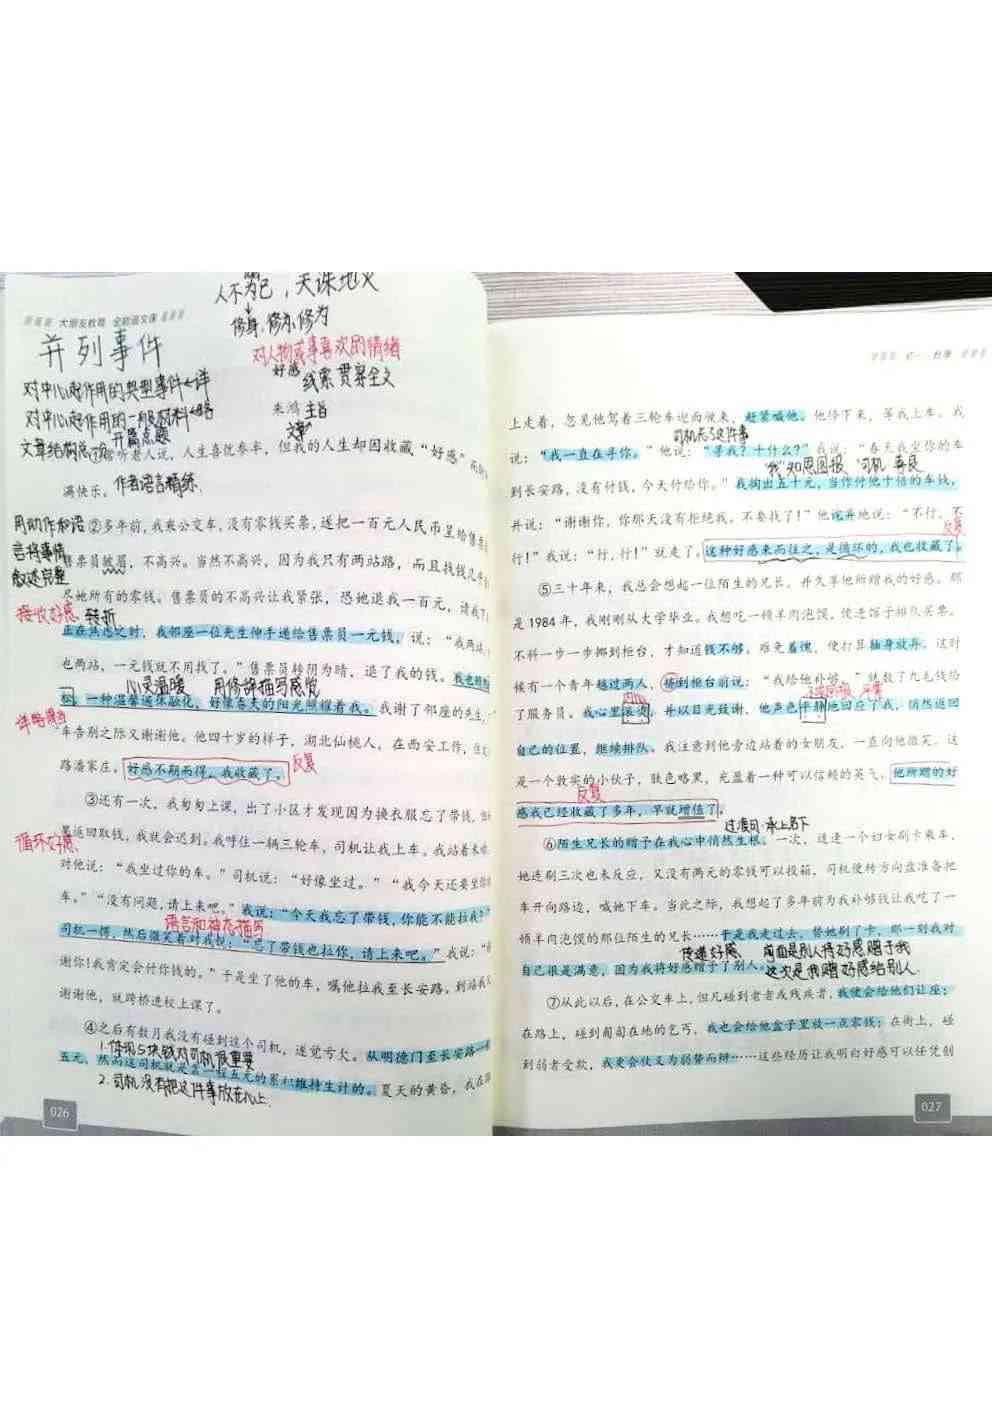 人不为己，天诛地灭
修身、修亦、修为
大朋友教育 全脑语文课
并列事件
对人物或事喜欢的情绪
好感 线索 贯穿全文
对中心起作用的典型事件←详
对中心起作用的一般材料←略
朱鸿 主旨
文章结构总
开篇点题
①常听老人说，人生喜忧参半，但我的人生却因收藏“好感”而
满快乐。
作者语言精练
用动作和语言将事情叙述完整
②多年前，我乘公交车，没有零钱买票，遂把一百元人民币呈给售票
售票员皱眉，不高兴。当然不高兴，因为我只有两站路，而且找钱几乎
尽她所有的零钱。售票员的不高兴让我紧张，恐她退我一百元，请我下
接收好感 转折
正在焦虑之时，我邻座一位先生伸手递给售票员一元钱，说：“我两站，
也两站，一元钱就不用找了。”售票员转阴为晴，退了我的钱。我也
心灵温暖 用修辞描写感觉
一种温馨通体融化，好像春天的阳光照耀着我。我谢了邻座的先生，
详略得当
车告别之际又谢谢他。他四十岁的样子，湖北仙桃人，在西安工作，住
路潘家庄。好感不期而得，我收藏了。
反复
③还有一次，我匆匆上课，出了小区才发现因为换衣服忘了带钱，
果返回取钱，我就会迟到。我呼住一辆三轮车，司机让我上车。我站着未
循环好感
对他说：“我坐过你的车。”司机说：“好像坐过。”“我今天还要坐你
车。”“没有问题，请上来吧。”我说：“今天我忘了带钱，你能不能拉我？”
语言和神态描写
司机一愣，然后微笑着对我说：“忘了带钱也拉你，请上来吧。”我说：“
谢你！我肯定会付你钱的。”于是坐了他的车，嘱他拉我至长安路。到站我
谢谢他，就跨桥进校上课了。
④之后有数月我没有碰到这个司机，遂觉亏欠。从明德门至长安路一
1.体现5块钱对司机很重要
五元，然而这司机就是靠一程五元的累积维持生计的。夏天的黄昏，我在
2.司机没有把这件事放在心上
026
初一·秋季
上走着，忽见他驾着三轮车迎面而来，赶紧喊他。他停下来，等我上车。我
司机忘了这件事
说：“我一直在寻你。”他说：“寻我？干什么？”我说：“春天我坐你的车
“我”知恩图报 司机 善良
到长安路，没有付钱，今天付给你。”我掏出五十元，当作付他十倍的车钱，
并说：“谢谢你，你那天没有拒绝我。不要找了！”他诧异地说：“不行，不
反复
行！”我说：“行，行！”就走了。这种好感来而往之，是循环的，我也收藏了。
⑤三十年来，我总会想起一位陌生的兄长，并久享他所赠我的好感。那
是1984年，我刚刚从大学毕业。我想吃一顿羊肉泡馍，便进馆子排队买票。
不料一步一步挪到柜台，才知道钱不够。难免羞愧，便打算抽身放弃。这时
候有一个青年越过两人，挤到柜台前说：“我给他补够。”就数了九毛钱给
了服务员。我心里滚烫，并以目光致谢，他声色平静地回应了我，悄然返回
自己的位置，继续排队。我注意到他旁边站着的女朋友，一直向他微笑。这
是一个敦实的小伙子，肤色略黑，充盈着一种可以信赖的英气。他所赠的好
反复
感我已经收藏了多年，早就增值了。
过渡句：承上启下
⑥陌生兄长的赠予在我心中悄然生根。一次，适逢一个妇女刷卡乘车，
她连刷三次也未反应，又没有两元的零钱可以投箱，司机便转方向盘准备把
车开向路边，喊她下车。当此之际，我想起了多年前为我补够钱让我吃了一
顿羊肉泡馍的那位陌生的兄长……于是我走过去，替她刷了卡，那一刻我对
传递好感 前面是别人将好感赠于我
自己很是满意，因为我将好感赠予了别人。
这次是我赠好感给别人
⑦从此以后，在公交车上，但凡碰到老者或残疾者，我便会给他们让座；
在路上，碰到匍匐在地的乞丐，我也会给他盒子里放一点零钱；在街上，碰
到弱者受欺，我更会仗义为弱势而辩……这些经历让我明白好感可以任凭创
027